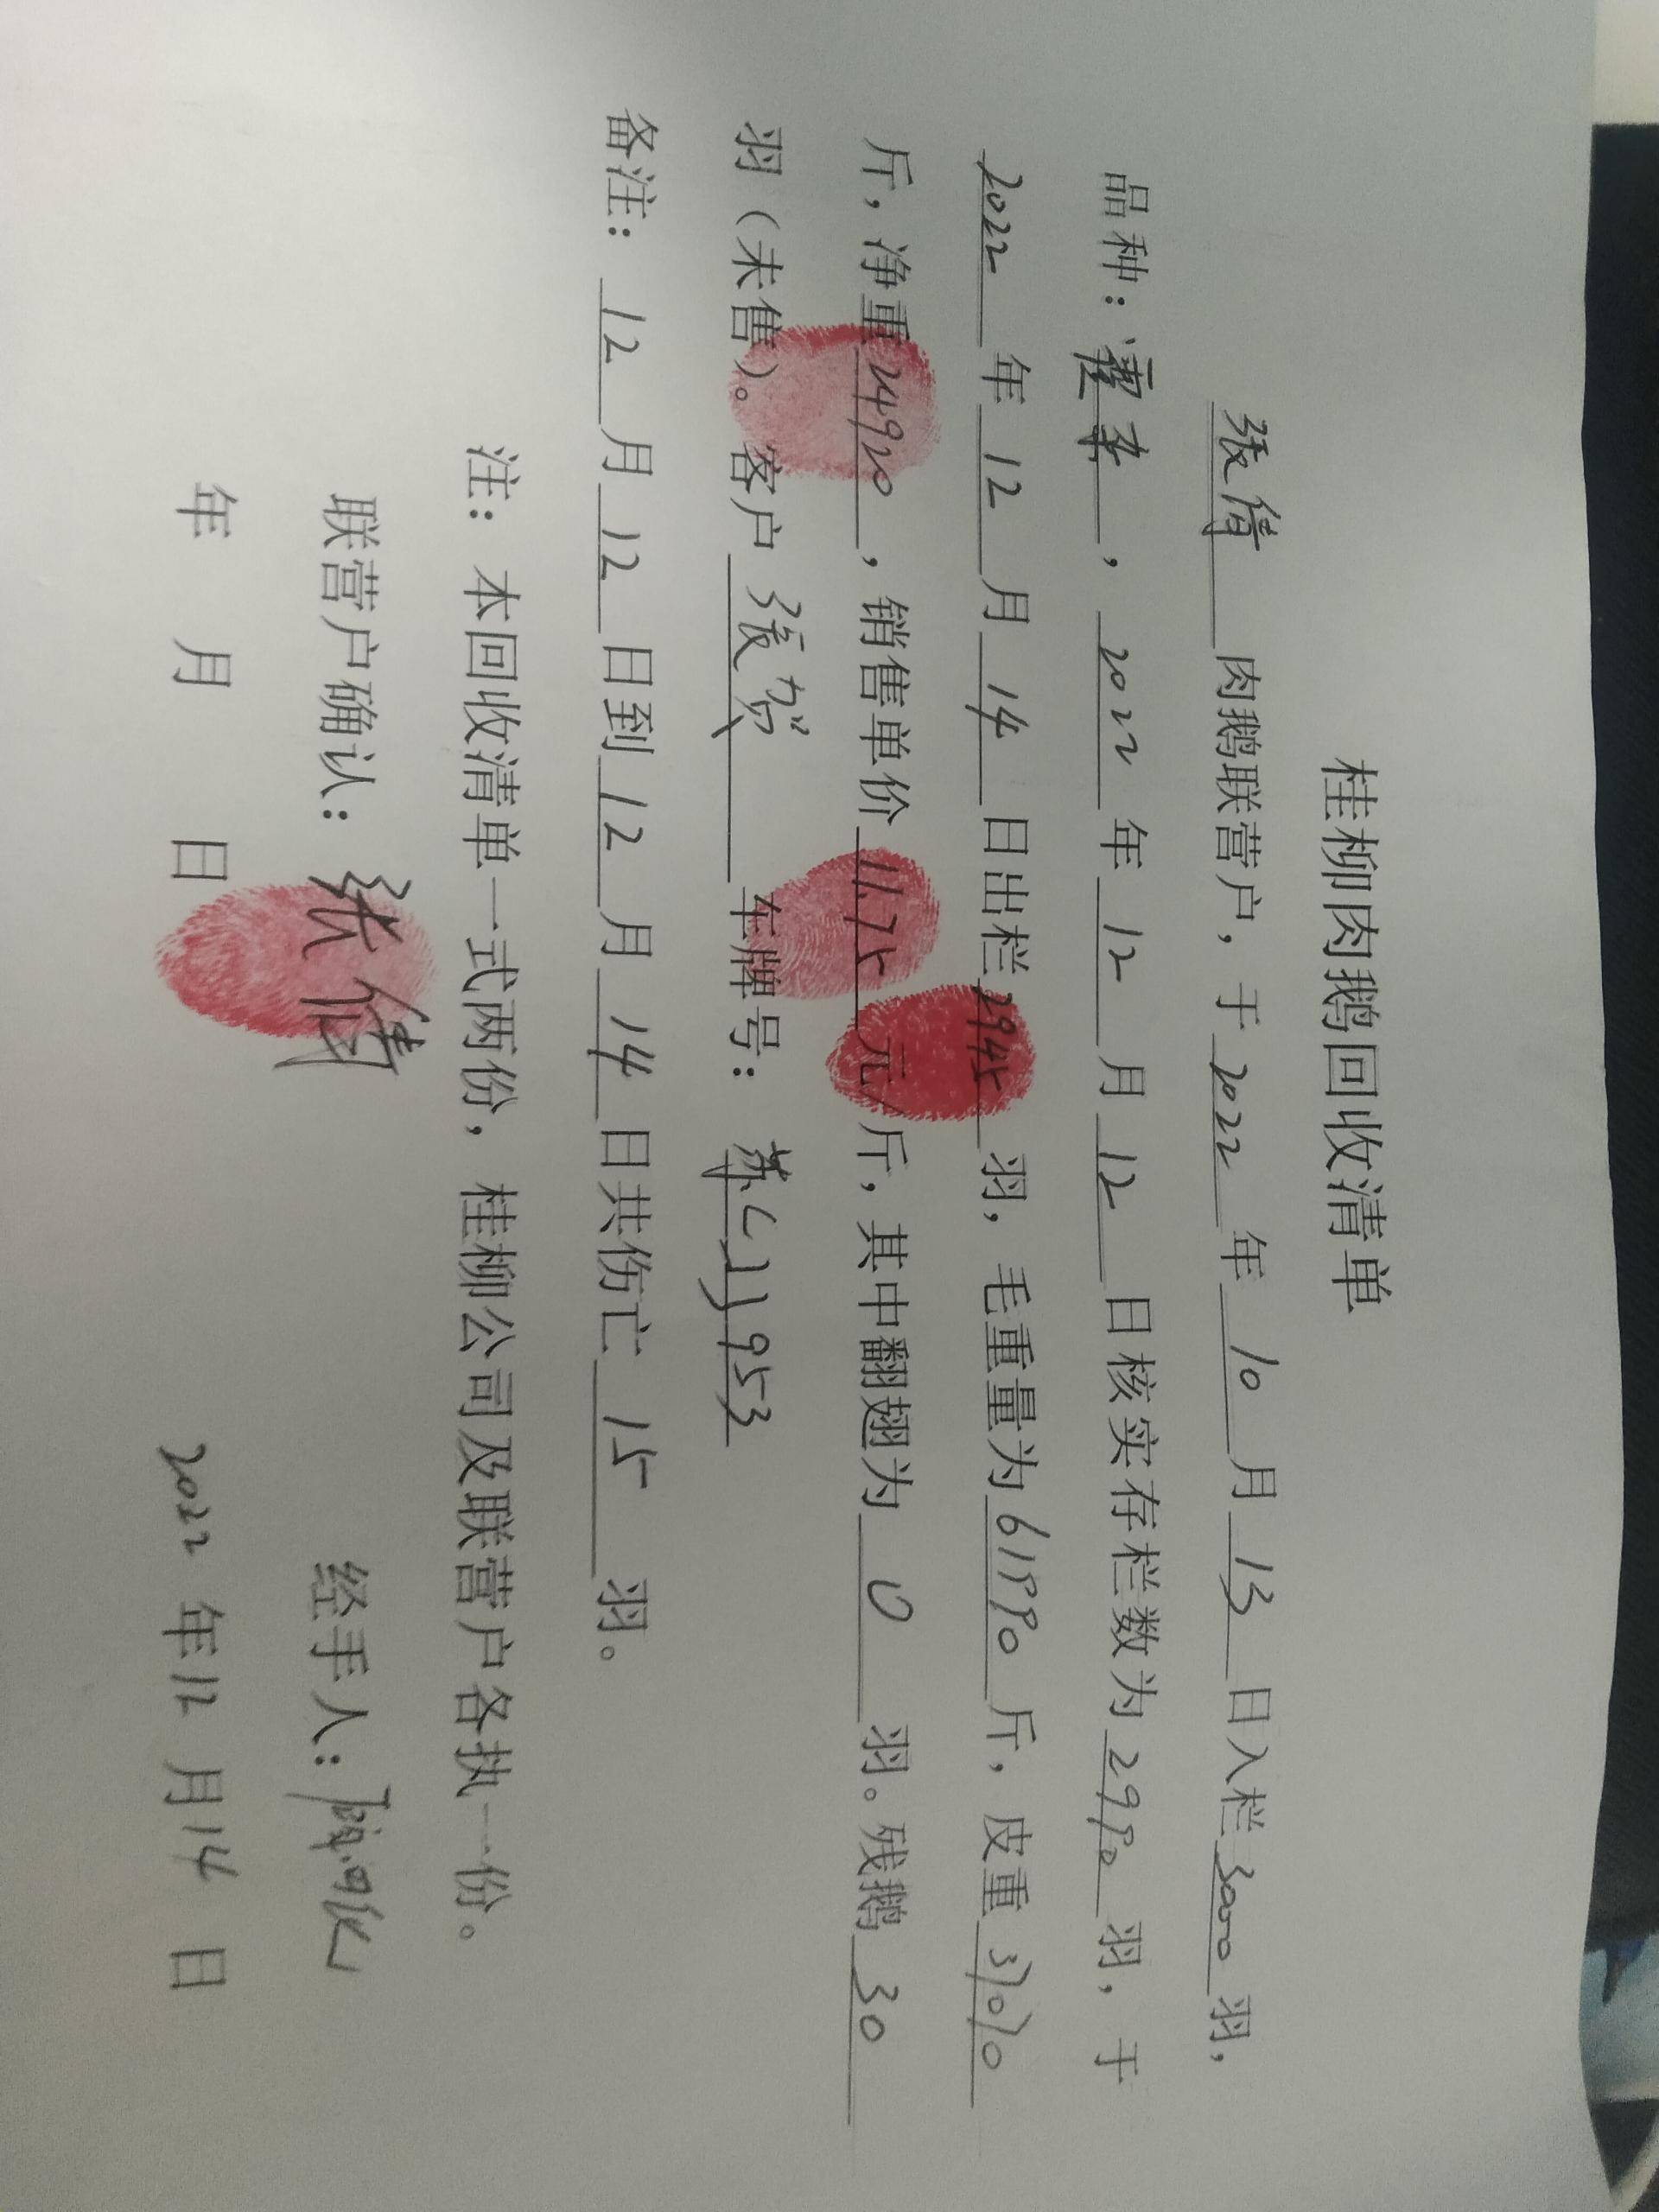 桂柳肉鹅回收清单
张倩 肉鹅联营户，于 2022 年 10 月 13 日入栏 3000 羽，
品种： ，2022 年 12 月 12 日核实存栏数为 2990 羽，于
2022 年 12 月 14 日出栏 2945 羽，毛重量为 61990 斤，皮重 37070
斤，净重 24920 ，销售单价 11.75 元/斤，其中翻翅为 0 羽。残鹅 30
羽（未售）。客户 张贺 车牌号： 苏C77953
备注： 12 月 12 日到 12 月 14 日共伤亡 15 羽。
注：本回收清单一式两份，桂柳公司及联营户各执一份。
联营户确认：张倩 经手人：
年 月 日 2022 年 12 月 14 日